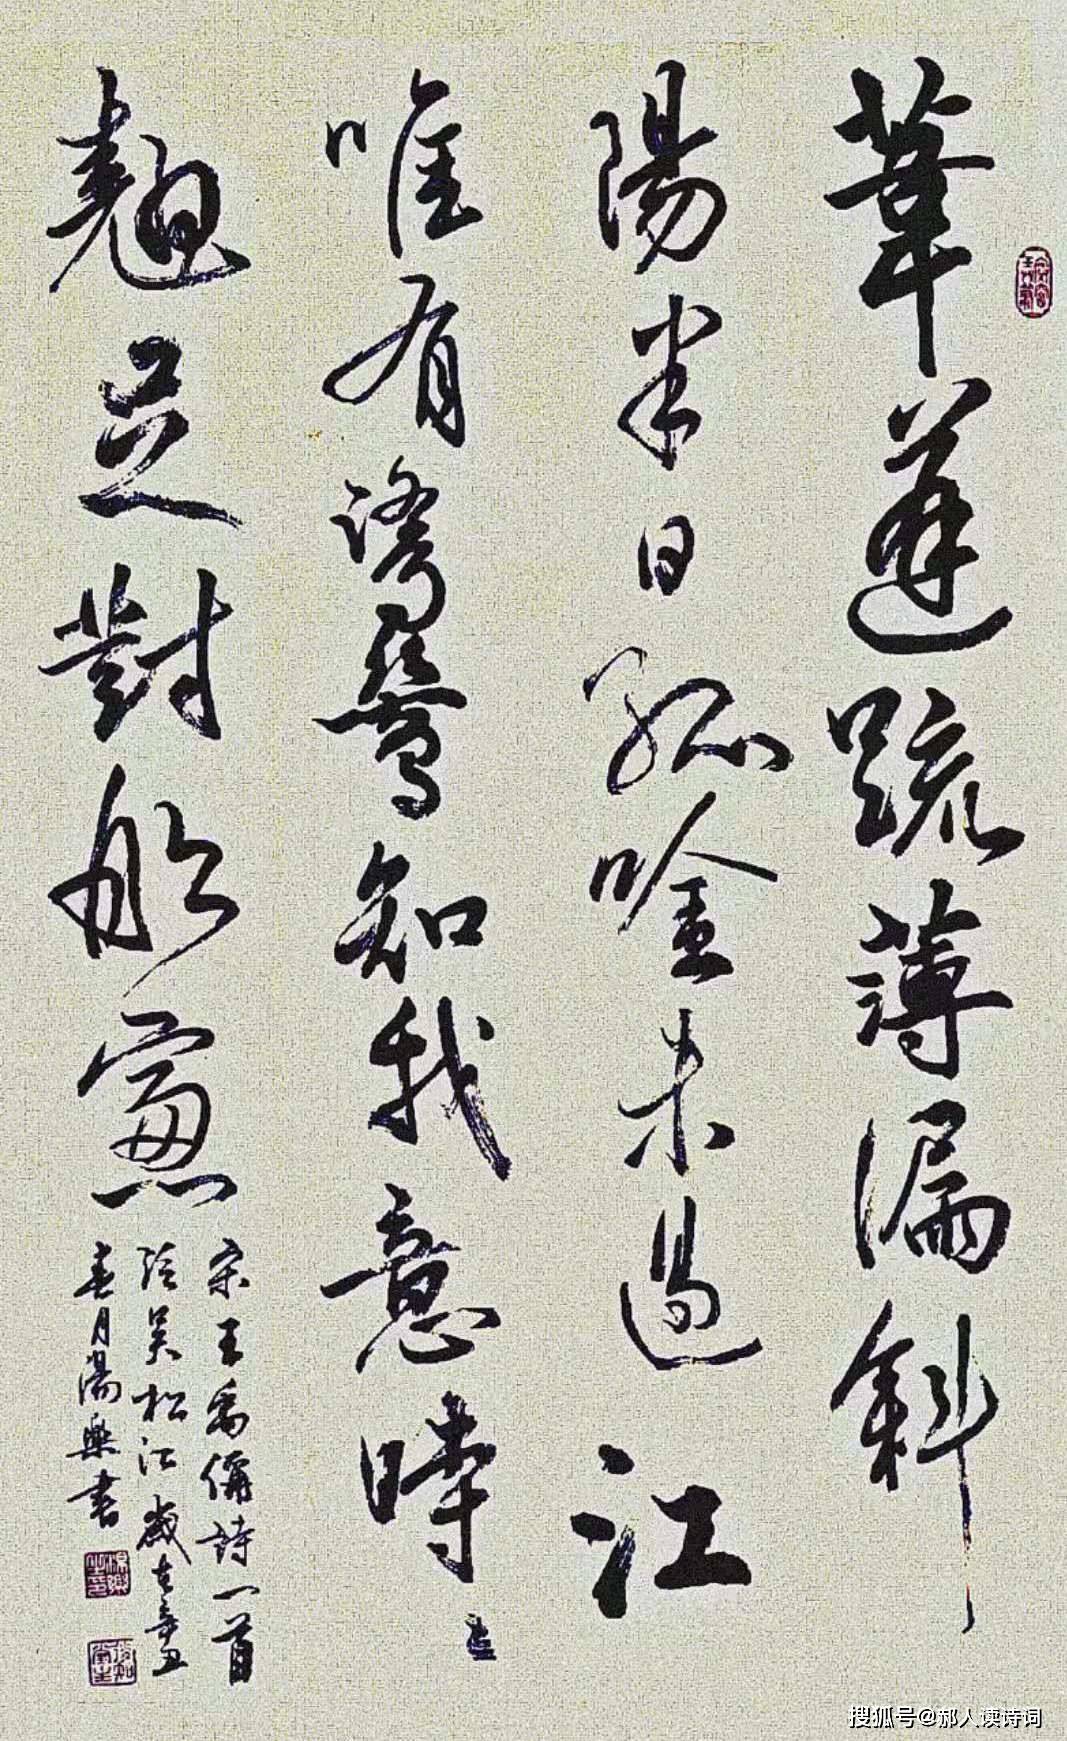 葦蓬疏薄漏斜
陽半日孤唫未過江
唯有鷺鷥知我意時々
翹足對船窗
宋王禹偁詩一首
泛吳松江歲在辛丑
春月楊樂書
搜狐号@郝人读诗词